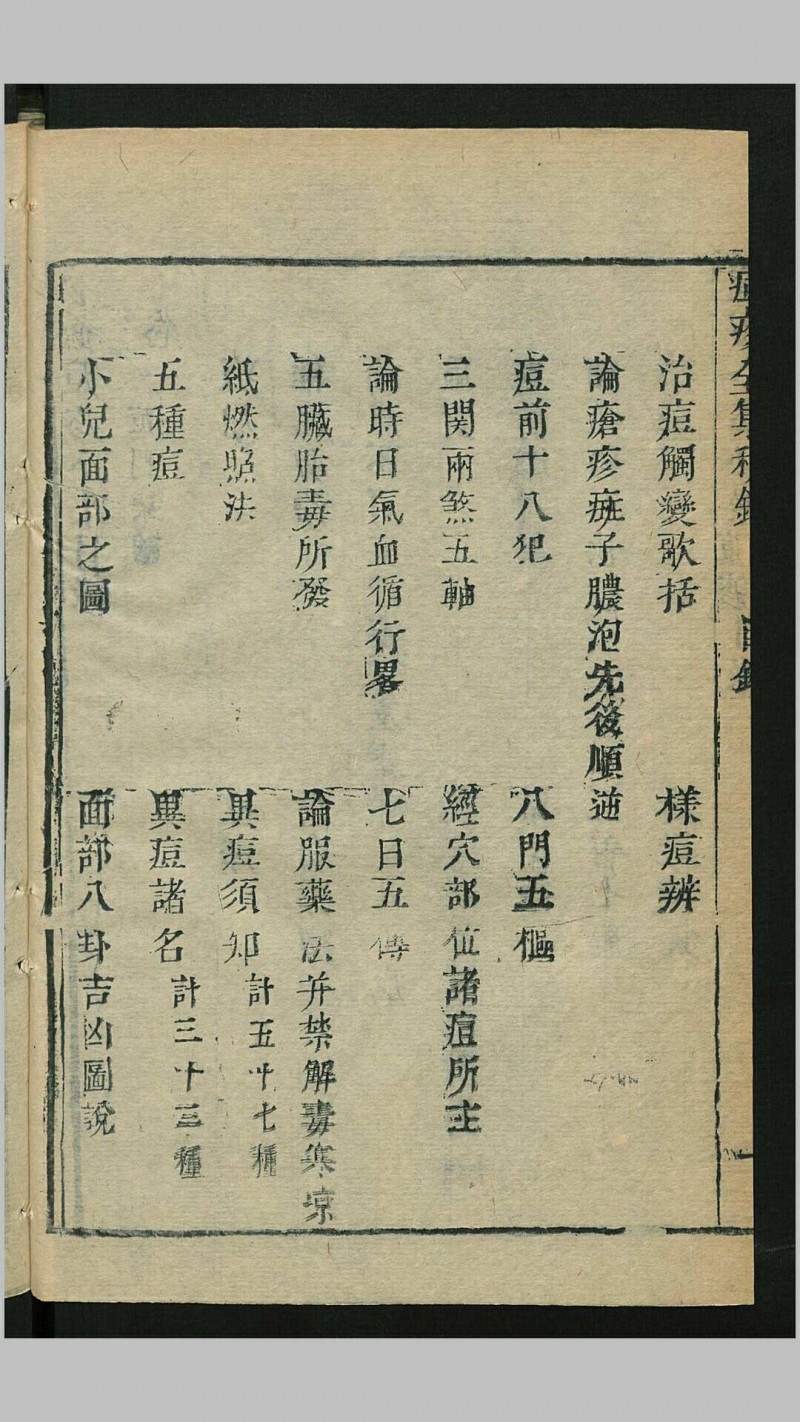 痘疹全集秘錄 目錄 一
治痘觸變歌括 樣痘辨
論瘡疹斑子膿泡先後順逆
痘前十八犯 八門五樞
三関兩煞五軸 經穴部位諸痘所主
論時日氣血循行畧 七日五傳
五臟胎毒所發 論服藥法并禁解毒寒凉
紙燃照法 異痘須知 計五十七種
五種痘 異痘諸名 計三十三種
小兒面部之圖 面部八卦吉凶圖說